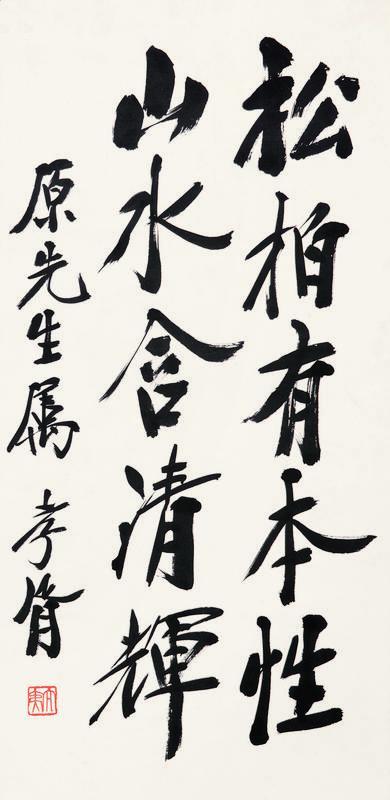 松柏有本性
山水含清輝
原先生属 孝胥